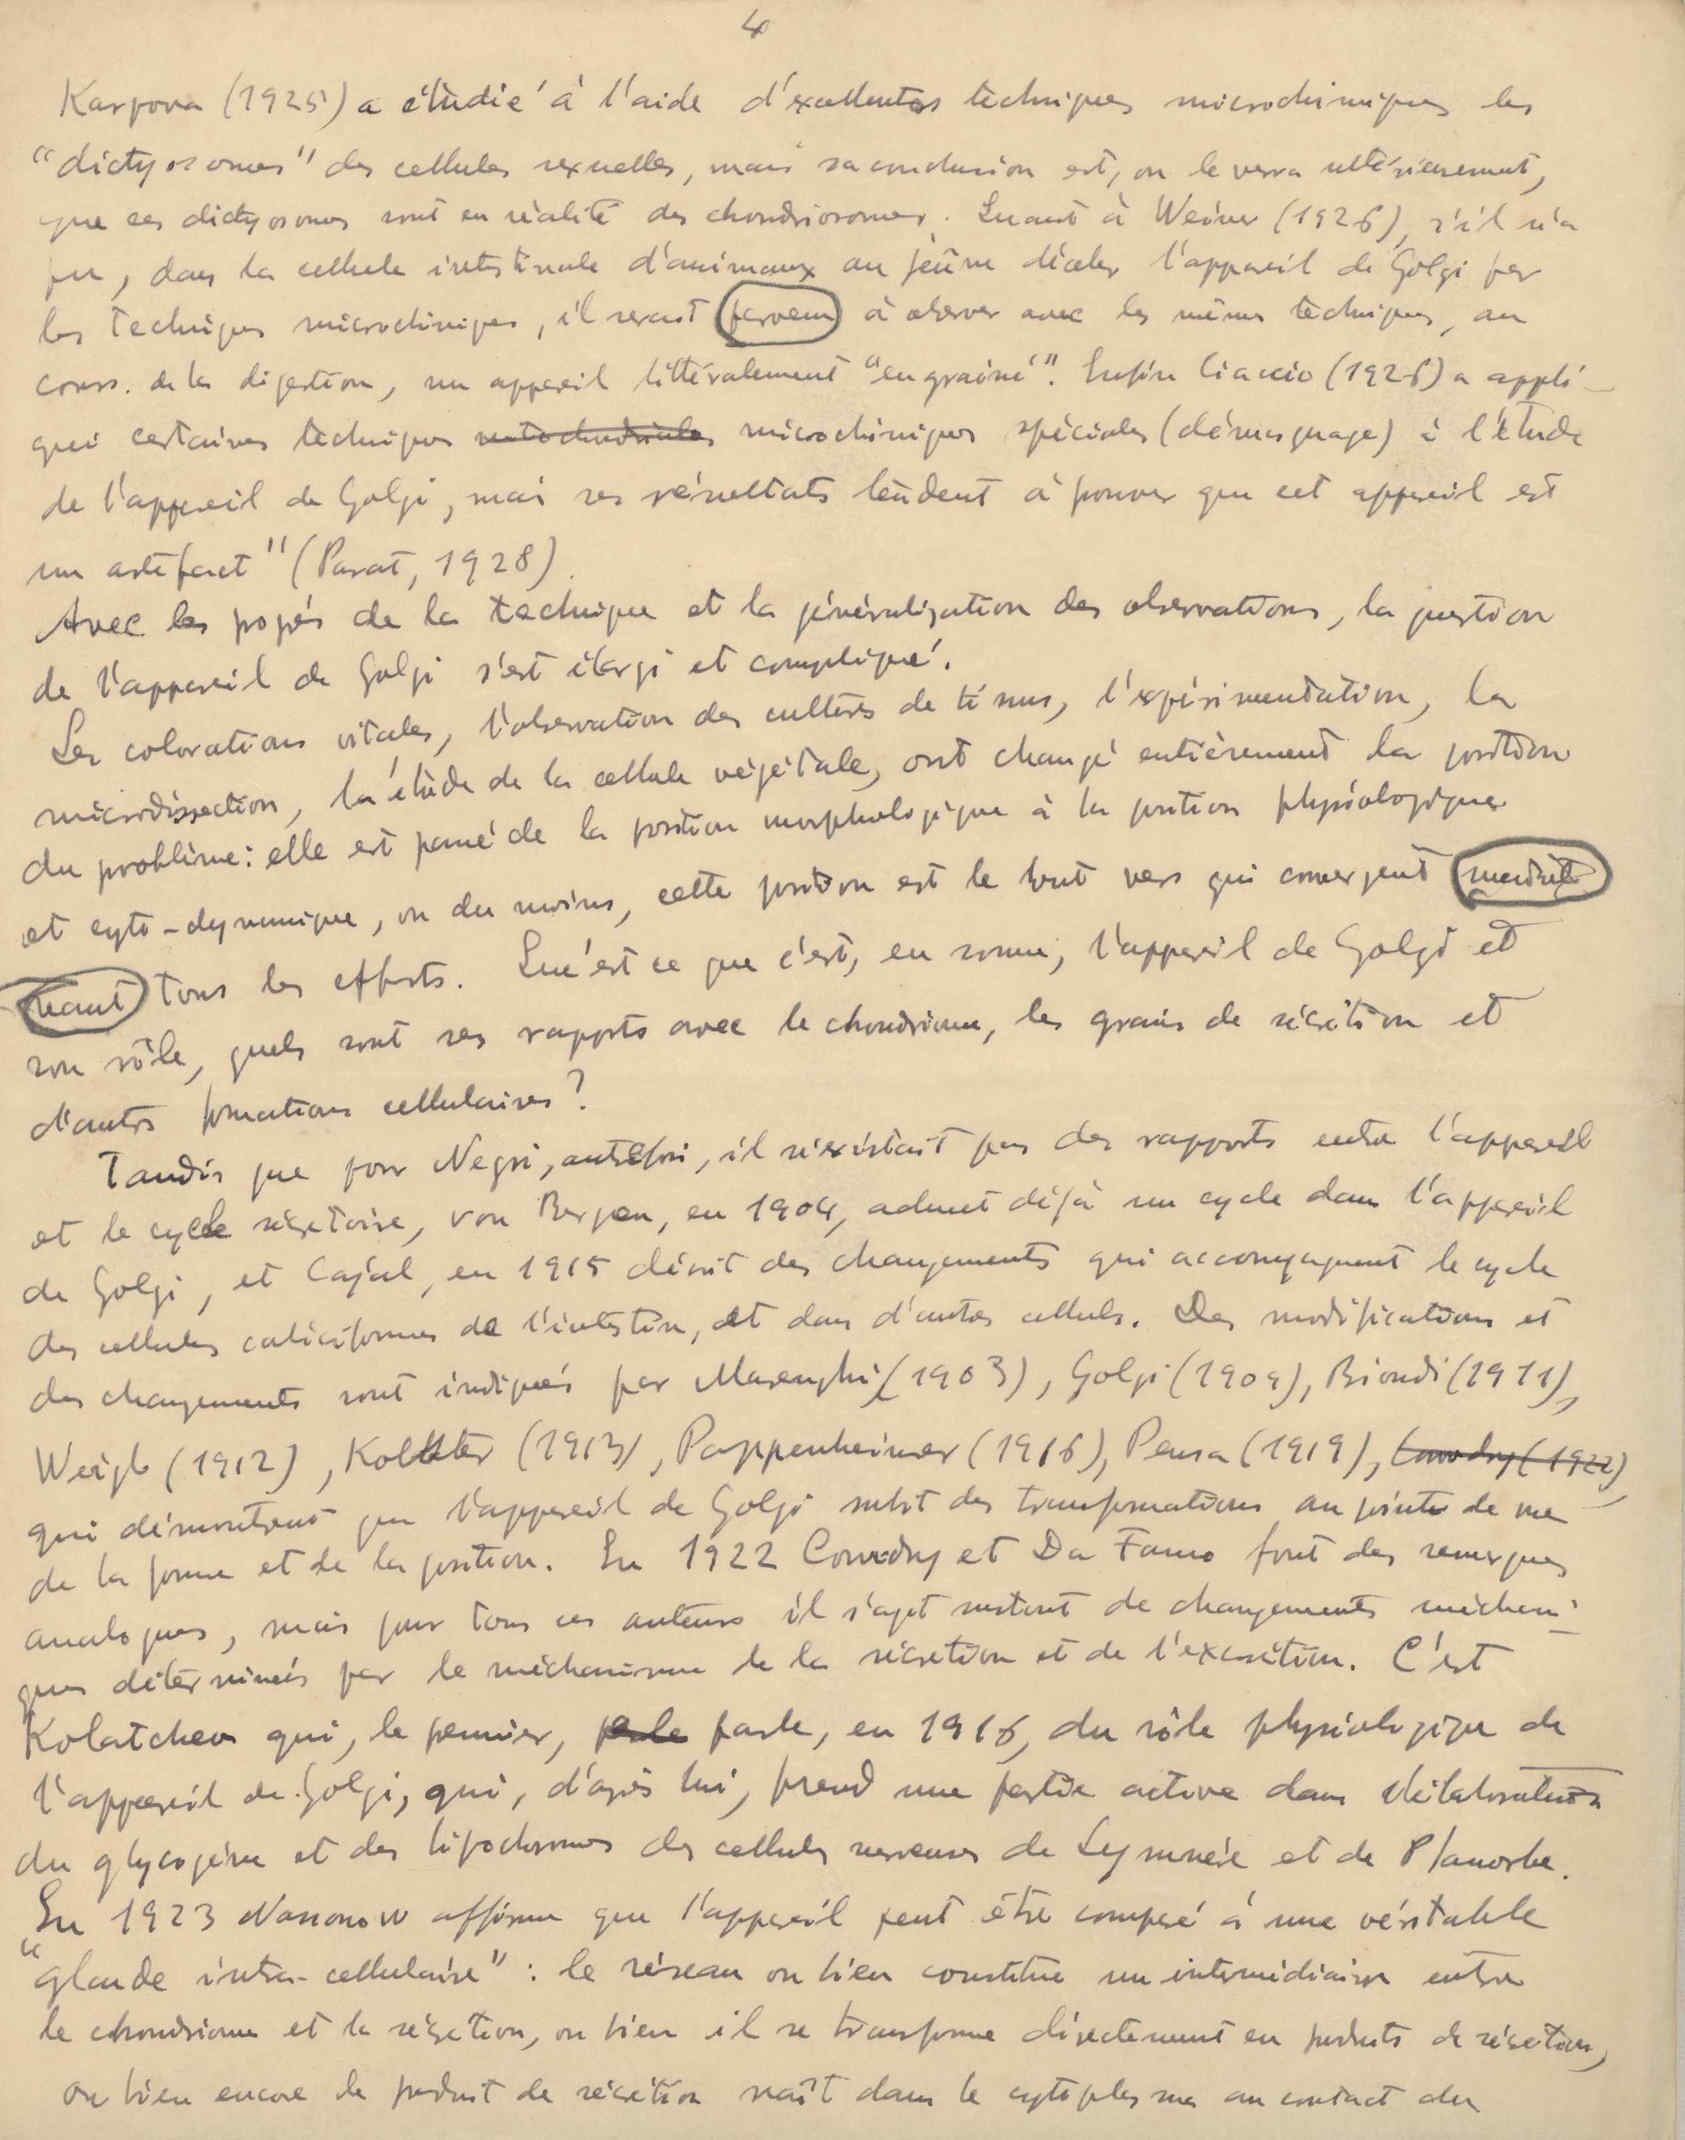 4
Karpova (1925) a étudié à l'aide d'excellentes techniques microchimiques les
"dictyosomes" des cellules sexuelles, mais sa conclusion est, on le verra ultérieurement,
que ces dictyosomes sont en réalité des chondriosomes. Quant à Weiner (1926), s'il n'a
pu, dans la cellule intestinale d'animaux au jeûne déceler l'appareil de Golgi par
les techniques microchimiques, il serait parvenu à observer avec les mêmes techniques, au
cours de la digestion, un appareil littéralement "engrainé". Enfin Ciaccio (1926) a appli-
qué certaines techniques mitochondriales microchimiques spéciales (démasquage) à l'étude
de l'appareil de Golgi, mais ses résultats tendent à prouver que cet appareil est
un artefact" (Parat, 1928).
Avec les progrès de la technique et la généralisation des observations, la question
de l'appareil de Golgi s'est élargi et compliqué.
Les colorations vitales, l'observation des cultures de tissus, l'expérimentation, la
microdissection, la étude de la cellule végétale, ont changé entièrement la position
du problème: elle est passé de la position morphologique à la position physiologique
et cyto-dynamique, ou du moins, cette position est le but vers qui convergent
tous les efforts. Qu'est ce que c'est, en somme, l'appareil de Golgi et
son rôle, quels sont ses rapports avec le chondriome, les grains de sécrétion et
d'autres formations cellulaires?
Tandis que pour Negri, autrefois, il n'existait pas des rapports entre l'appareil
et le cycle sécrétoire, von Bergen, en 1904, admet déjà un cycle dans l'appareil
de Golgi, et Cajal, en 1915 décrit des changements qui accompagnent le cycle
des cellules caliciformes de l'intestin, et dans d'autres cellules. Des modifications et
des changements sont indiqués par Marenghi (1903), Golgi (1909), Biondi (1911),
Weigl (1912), Kolster (1913), Pappenheimer (1916), Pensa (1919), Cowdry (1922)
qui démontrent que l'appareil de Golgi subit des transformations au point de vue
de la forme et de la position. En 1922 Cowdry et Da Fano font des remarques
analogues, mais pour tous ces auteurs il s'agit surtout de changements mécani-
ques déterminés par le méchanisme de la sécrétion et de l'excrétion. C'est
Kolatchev qui, le premier, parle, en 1916, du rôle physiologique de
l'appareil de Golgi, qui, d'après lui, prend une partie active dans l'élaboration
du glycogène et des lipochromes des cellules nerveuses de Lymnée et de Planorbe.
En 1923 Nassonow affirme que l'appareil peut être comparé à une véritable
"glande intra-cellulaire": le réseau ou bien constitue un intermédiaire entre
le chondriome et la sécrétion, ou bien il se transforme directement en produits de sécrétion,
ou bien encore le produit de sécrétion naît dans le cytoplasma au contact du